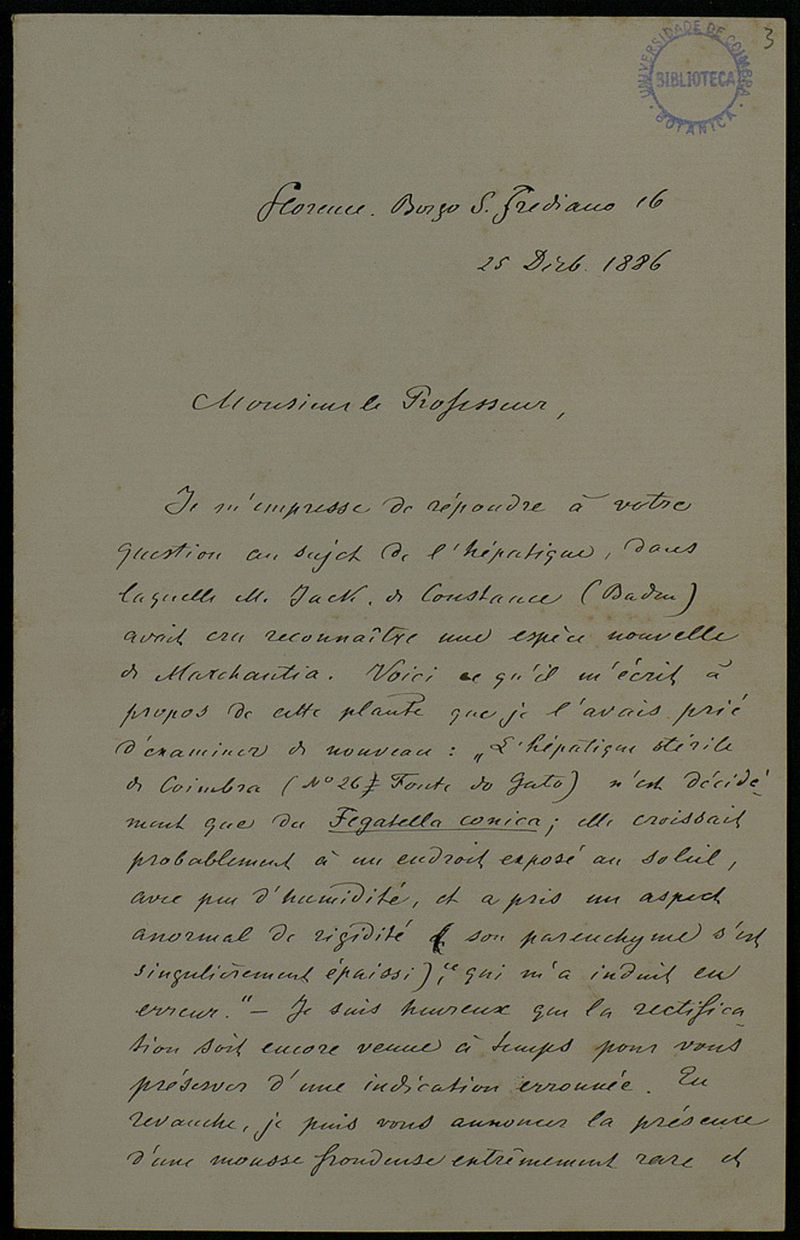 3
UNIVERSIDADE DE COIMBRA
BIBLIOTECA
BOTANICA
Florence. Borgo S. Frediano 16
25 Dicb. 1886
Monsieur le Professeur,
Je m'empresse de répondre à votre
question au sujet de l'hépatique, dans
laquelle M. Jack, de Constance (Baden)
avait cru reconnaître une espèce nouvelle
de Marchantia. Voici ce qu'il m'écrit à
propos de cette plante que je l'avais prié
d'examiner de nouveau : „L'hépatique stérile
de Coimbra (No 26 Fonte do Gato) n'est décidé-
ment que du Fegatella conica; elle croissait
probablement à un endroit exposé au soleil,
avec peu d'humidité, et a pris un aspect
anormal de rigidité ( son parenchyme s'est
singulièrement épaissi), ce qui m'a induit en
erreur." — Je suis heureux que la rectifica-
tion soit encore venue à temps pour vous
préserver d'une indication erronnée. En
revanche, je puis vous annoncer la présence
d'une mousse frondeuse extrêmement rare et